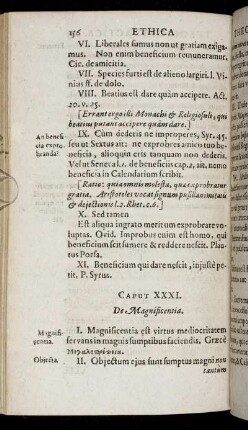 156 ETHICA
VI. Liberales sumus non ut gratiam exiga-
mus. Non enim beneficium remuneramur.
Cic. de amicitia.
VII. Species furti est de alieno largiri. l. Vi-
nius ff. de dolo.
VIII. Beatius est dare quàm accipere. Act.
20. v. 35.
[Errant ergo illi Monachi & Religiosuli, qui
beatius putant accipere quàm dare.]
An benefi-
cia expro-
branda?
IX. Cùm dederis ne improperes, Syr. 45.
seu ut Sextus ait: ne exprobres amico tuo be-
neficia, alioquin eris tanquam non dederis,
Velut Seneca l. 2. de beneficiis cap. 2. ait. nemo
beneficia in Calendarium scribit.
[Ratio: quia omnis molesta, quæ exprobratur
gratia. Aristoteles vocat signum pusillanimitatis
& dejectionis l. 2. Rhet. c. 6.]
X. Sed tamen
Est aliqua ingrato meritum exprobrare vo-
luptas. Ovid. Improbe enim est homo, qui
beneficium scit sumere & reddere nescit. Plau-
tus Persa.
XI. Beneficium qui dare nescit, injustè pe-
tit. P. Syrus.
CAPUT XXXI.
De Magnificentia.
Magnifi-
centia.
I. Magnificentia est virtus mediocritatem
servans in magnis sumptibus faciendis. Græcè
Objecta.
II. Objectum ejus sunt sumptus magni non
tantum